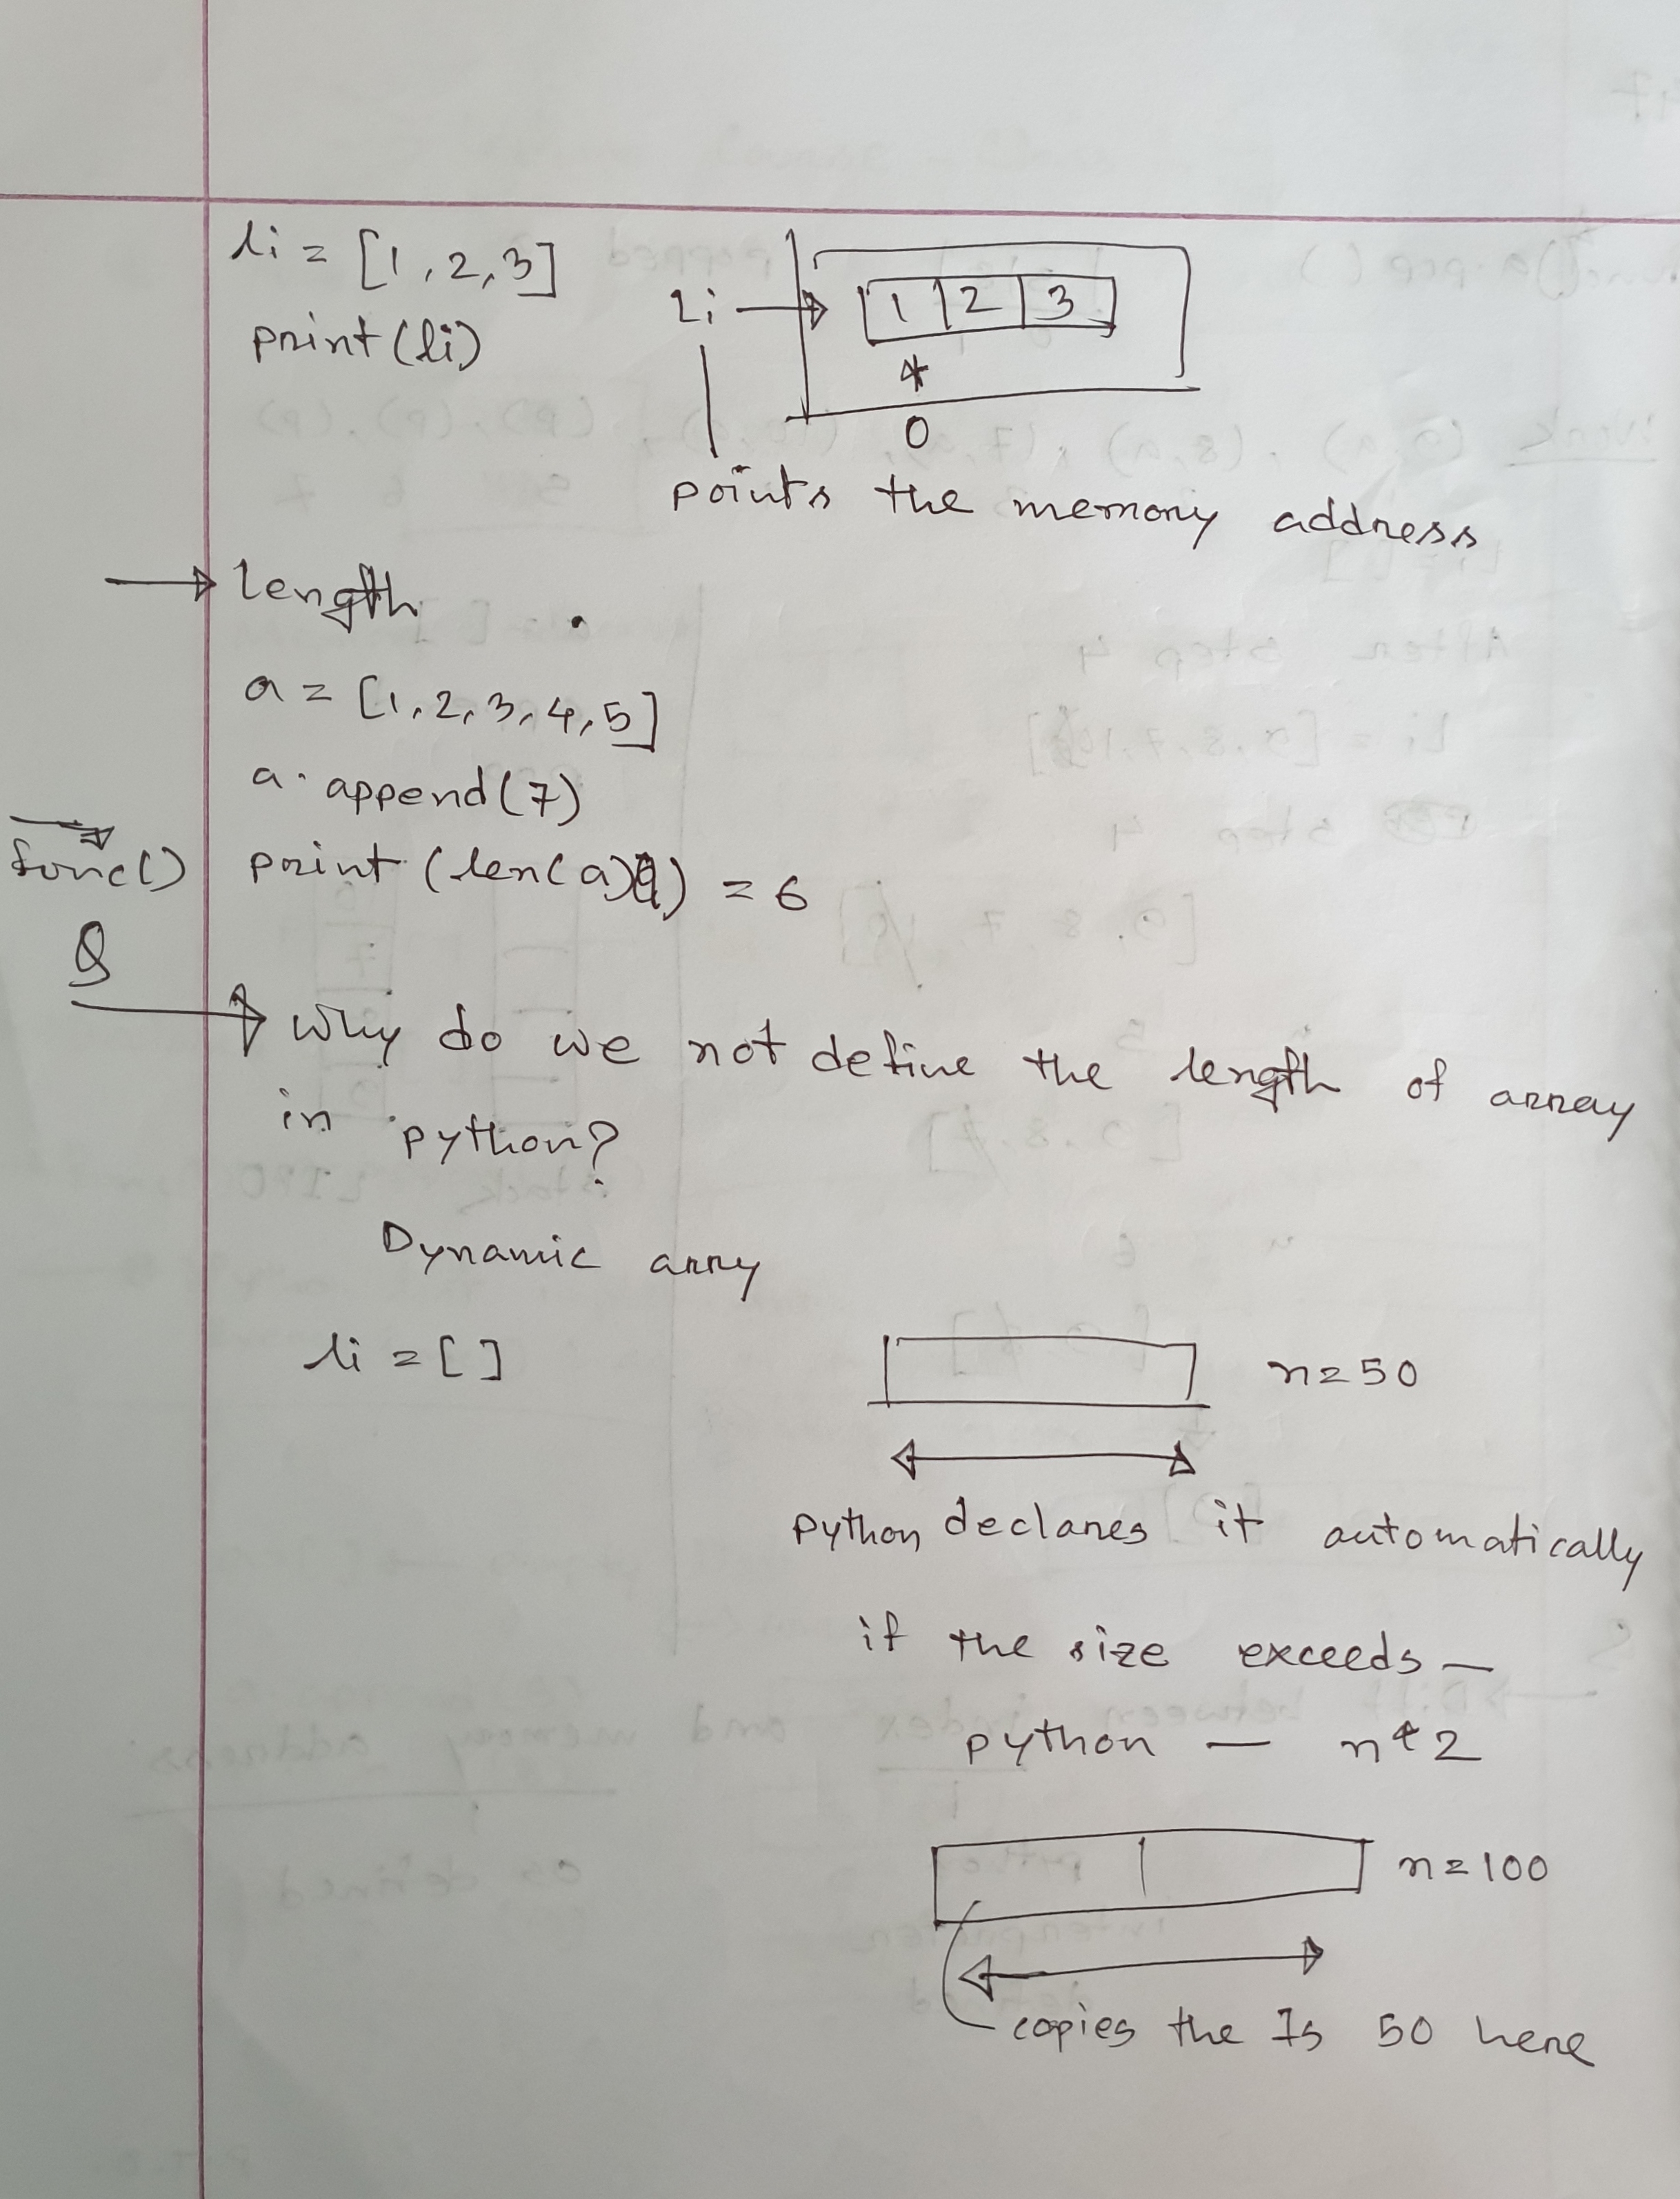 li = [1,2,3]
print(li)
Li → 1 2 3
*
0
points the memory address
→ length
a = [1,2,3,4,5]
a.append(7)
func() print(len(a)) = 6
Q
→ Why do we not define the length of array
in python?
Dynamic arry
li = []
n=50
Python declares it automatically
if the size exceeds —
python — n*2
n=100
copies the Is 50 here